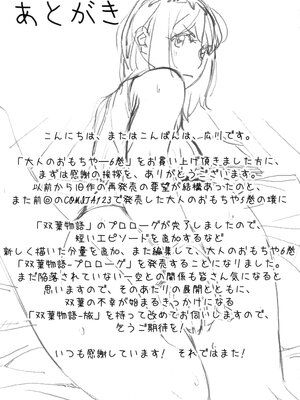 あとがき
こんにちは、またはこんばんは、広川です。
「大人のおもちゃー6巻」をお買い上げ頂きました方に、
まずは感謝の挨拶を、ありがとうございます。
以前から旧作の再発売の要望が結構あったのと、
また前回のCOMITIA123で発売した大人のおもちゃ5巻の頃に
「双葉物語」のプロローグが完了しましたので、
短いエピソードを追加するなど
新しく描いた分量を追加、また編集して、大人のおもちゃ6巻
「双葉物語-プロローグ」を発売することになりました。
まだ陥落されていない一空との関係も皆さん気になると
思いますので、そのあたりの展開とともに、
双葉の不幸が始まるきっかけになる
「双葉物語-旅」を持って改めてお伺いしますので、
乞うご期待を!
いつも感謝しています! それではまた!